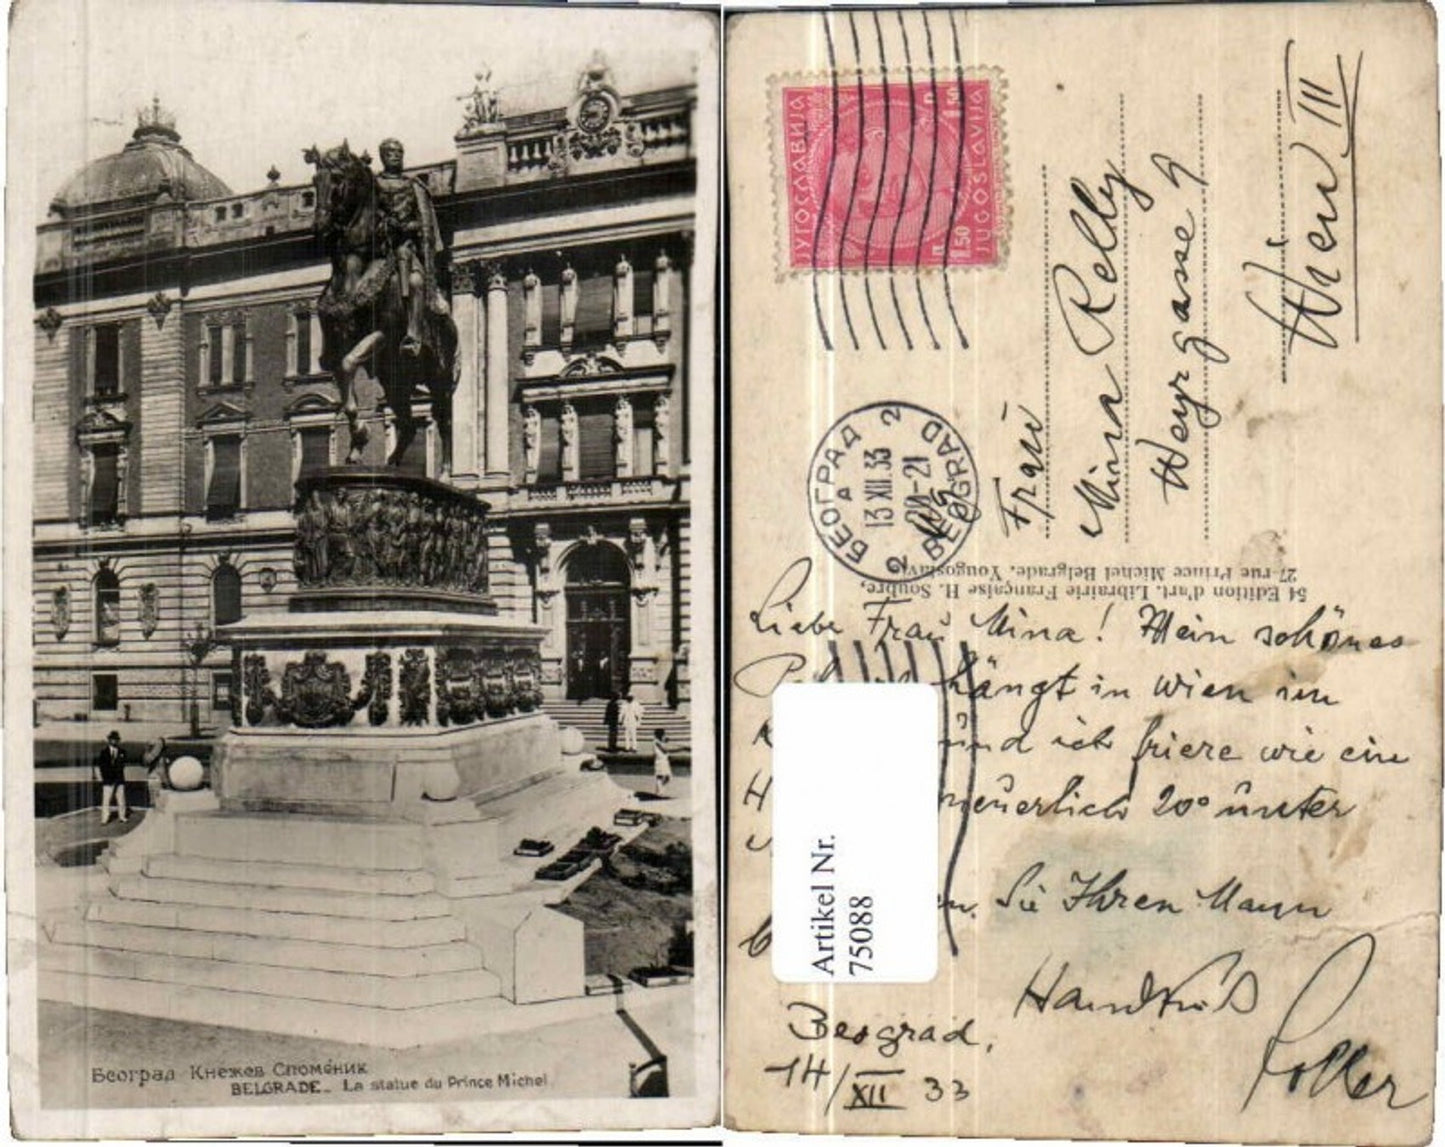 Београд Кнежев Споменик
BELGRADE_ La statue du Prince Michel
ЈУГОСЛАВИЈА
JUGOSLAVIJA
1.50
1.50
БЕОГРАД 2
13 XII.33
20-21
2 BEOGRAD
Frau
Mina Relly
Weyrgasse 9
Wien III
54 Edition d'art. Librairie Française H. Soubre,
27 rue Prince Michel Belgrade. Yougoslavie
Liebe Frau Mina! Mein schönes
hängt in Wien im
und ich friere wie ein
neuerlich 20° unter
Sie Ihren Mann
Handkuß
Beograd,
14/XII 33
Artikel Nr.
75088